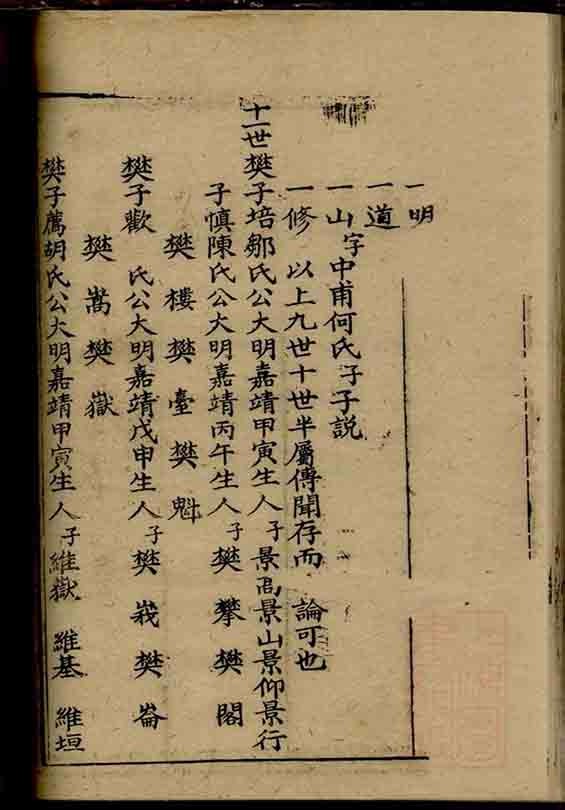 一明
一道
一山字中甫何氏子子說
一修 以上九世十世半屬傳聞存而 論可也
十一世樊子培鄒氏公大明嘉靖甲寅生人子景高景山景仰景行
子慎陳氏公大明嘉靖丙午生人子樊攀樊閣
樊樓樊臺樊魁
樊子歡 氏公大明嘉靖戊申生人子樊峩樊崙
樊嵩樊嶽
樊子鷹胡氏公大明嘉靖甲寅生人子維嶽 維基 維垣